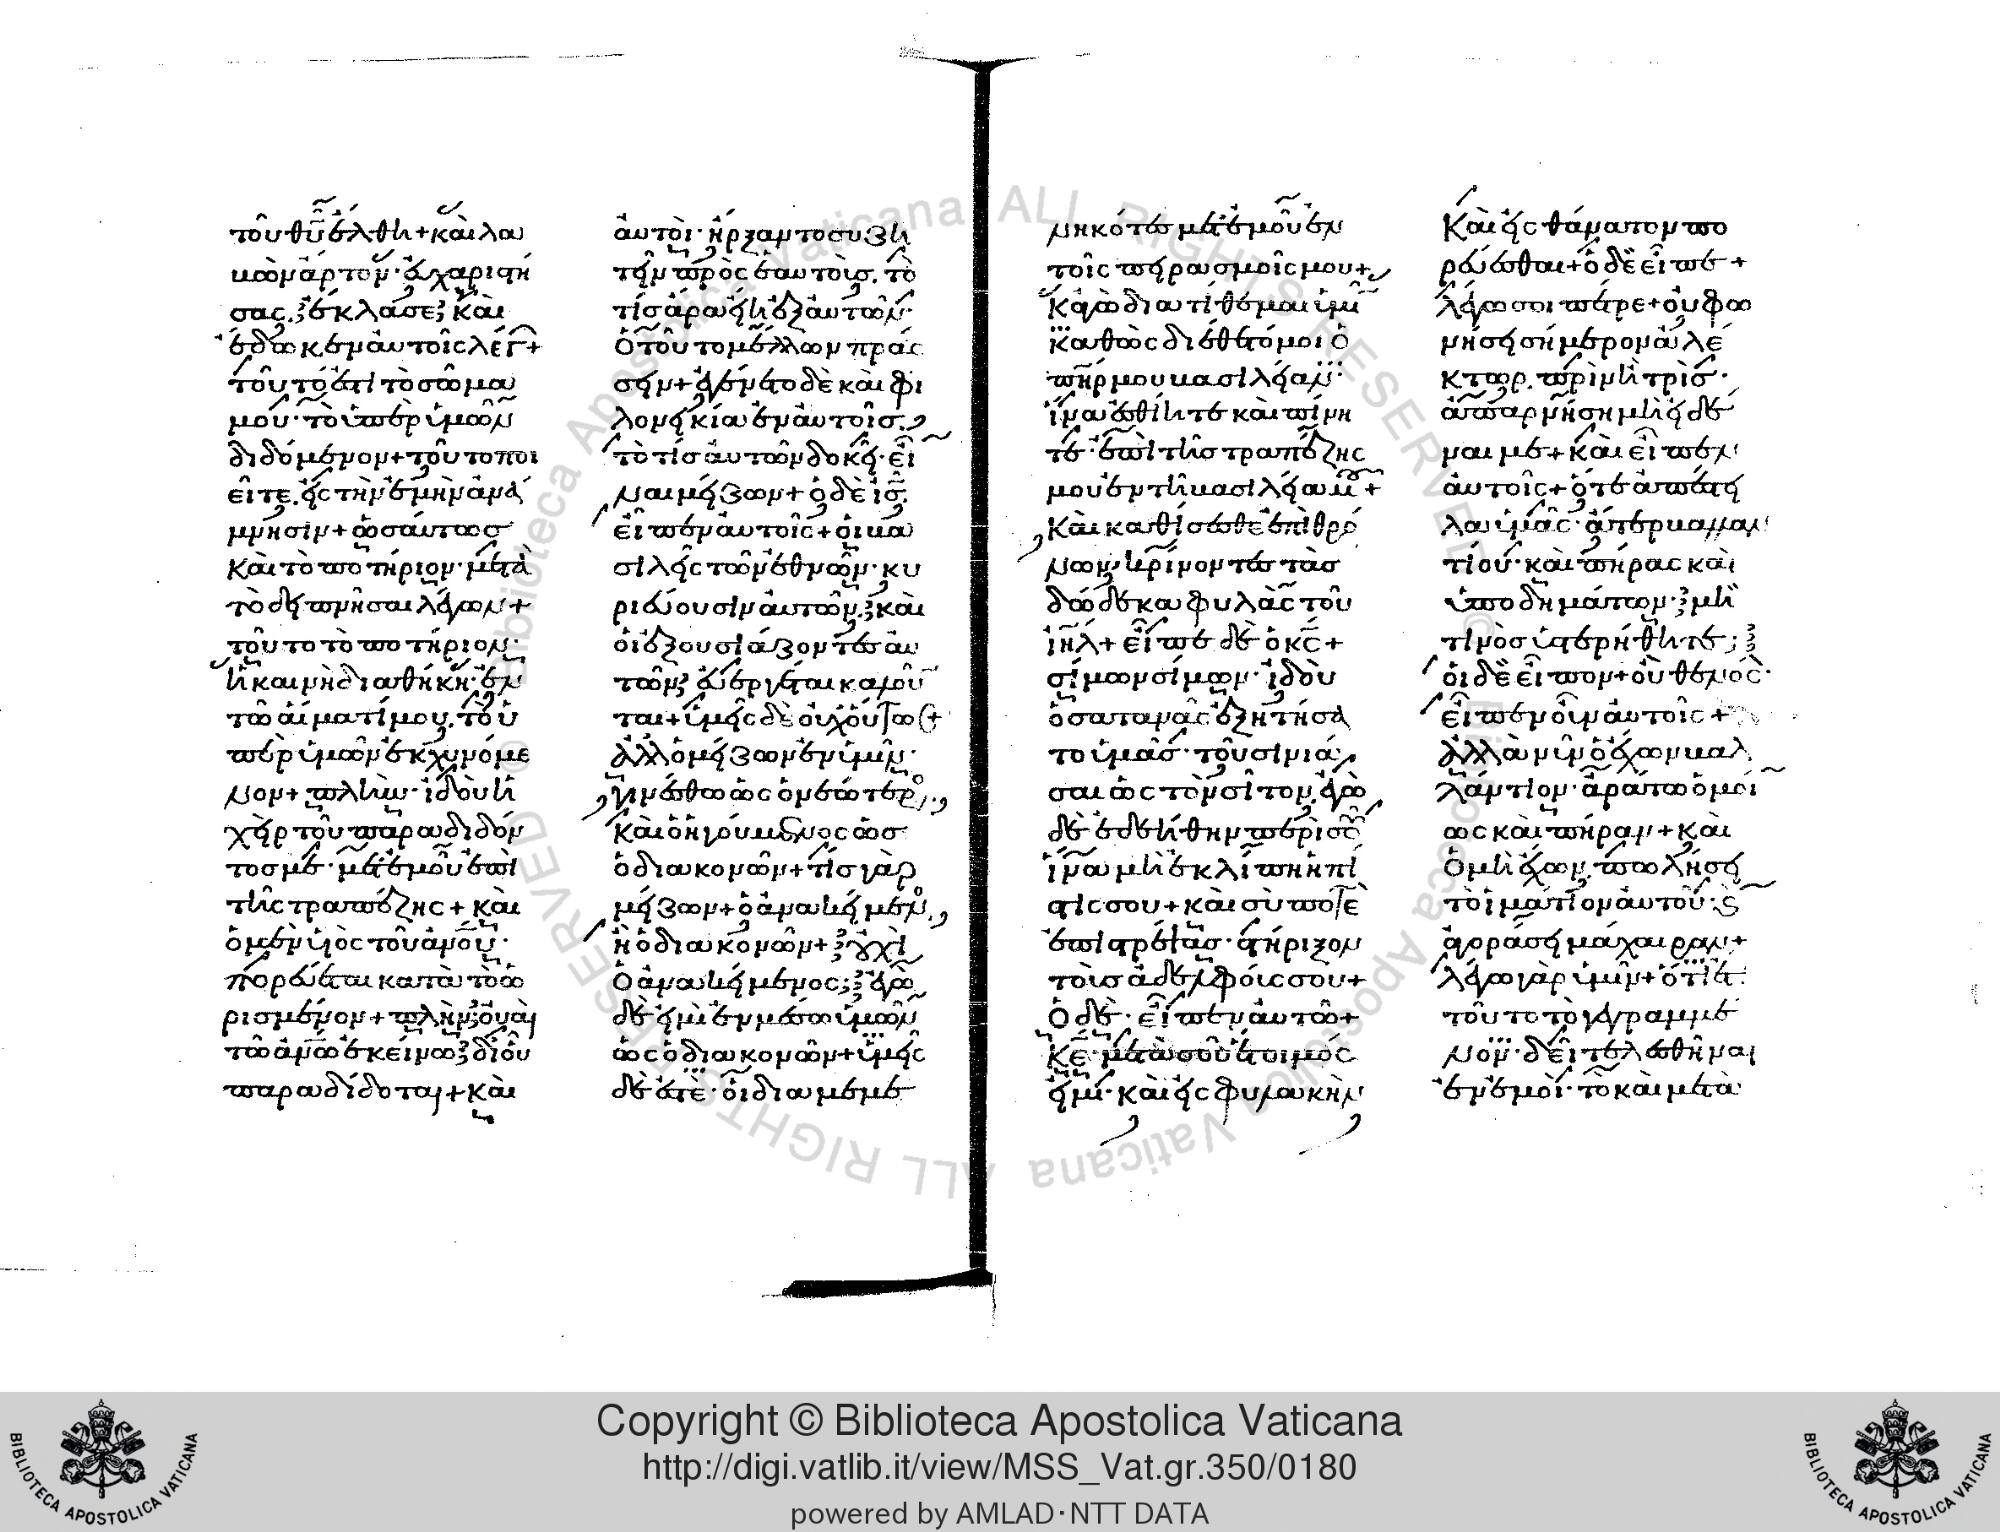 τοῦ θῦ ἔλθη + καὶ λα
βὼν ἄρτον· εὐχαριστή
σας, ἔκλασε, καὶ
ἔδωκεν αὐτοῖς λέγ +
τοῦτό ἐστὶ τὸ σῶμα
μου· τὸ ὑπὲρ ὑμῶν
διδόμενον + τοῦτο ποι
εῖτε, εἰς τὴν ἐμὴν ἀνά
μνησιν + ὡσαύτως
καὶ τὸ ποτήριον· μετὰ
τὸ δειπνῆσαι λέγων +
τοῦτο τὸ ποτήριον·
ἡ καινὴ διαθήκη· ἐν
τῶ αἵματί μου, τὸ ὑ
πὲρ ὑμῶν ἐκχυνόμε
νον + πλὴν· ἰδοὺ ἡ
χεὶρ τοῦ παραδιδόν
τος με· μετ' ἐμοῦ ἐπὶ
τῆς τραπέζης + καὶ
ὁ μὲν υἱὸς τοῦ ἀνοῦ·
πορεύεται κατὰ τὸ ὡ
ρισμένον + πλὴν οὐαὶ
τῶ ἀνῶ ἐκείνω δι' οὗ
παραδίδοται + καὶ
αὐτοὶ· ἤρξαντο συζη
τεῖν πρὸς ἑαυτοὺς, τὸ
τίς ἄρα εἴη ἐξ αὐτῶν·
ὁ τοῦτο μέλλων πράσ
σειν + ἐγένετο δὲ καὶ φι
λονεικία ἐν αὐτοῖς,
τὸ τίς αὐτῶν δοκεῖ· εἶ
ναι μείζων + ὁ δὲ ἰς,
εἶπεν αὐτοῖς + οἱ βα
σιλεῖς τῶν ἐθνῶν· κυ
ριεύουσιν αὐτῶν, καὶ
οἱ ἐξουσιάζοντες αὐ
τῶν εὐεργέται καλοῦ
ται + ὑμεῖς δὲ οὐχ οὕτω +
ἀλλ' ὁ μείζων ἐν ὑμῖν·
γινέσθω ὡς ὁ νεώτερο,
καὶ ὁ ἡγούμενος ὡς
ὁ διακονῶν + τίς γὰρ
μείζων + ὁ ἀνακείμενο,
ἢ ὁ διακονῶν + οὐχὶ
ὁ ἀνακείμενος; ἐγὼ
δέ εἰμι ἐν μέσω ὑμῶν
ὡς ὁ διακονῶν + ὑμεῖς
δέ ἐστὲ· οἱ διαμεμε
νηκότες μετ' ἐμοῦ ἐν
τοῖς πειρασμοῖς μου +
κἀγὼ διατίθεμαι ὑμῖ
καθὼς διέθετό μοι ὁ
πῆρ μου βασιλείαν·
ἵνα ἐσθίητε καὶ πίνη
τε· ἐπὶ τῆς τραπέζης
μου ἐν τῆ βασιλεία μ +
καὶ καθίσεσθε ἐπὶ θρό
νων, κρίνοντες τὰς
δώδεκα φυλὰς τοῦ
ἰηλ + εἶπε δὲ ὁ κς +
σίμων σίμων· ἰδοὺ
ὁ σατανᾶς ἐξητήσα
το ὑμᾶς· τοῦ σινιά
σαι ὡς τὸν σῖτον, ἐγὼ
δὲ ἐδεήθην περὶ σοῦ
ἵνα μὴ ἐκλίπη ἡ πί
στις σου + καὶ σὺ ποτὲ
ἐπιστρέψας· στήριξον
τοὺς ἀδελφούς σου +
ὁ δὲ· εἶπεν αὐτῶ +
κε· μετὰ σοῦ ἕτοιμός
εἰμι· καὶ εἰς φυλακὴν
καὶ εἰς θάνατον πο
ρεύεσθαι + ὁ δὲ εἶπε +
λέγω σοι πέτρε + οὐ φω
νήσει σήμερον ἀλέ
κτωρ, πρὶν ἢ τρὶς·
ἀπαρνήση μὴ εἰδέ
ναι με + καὶ εἶπεν
αὐτοῖς + ὅτε ἀπέστει
λα ὑμᾶς· ἄτερ βαλλαν
τίου· καὶ πήρας καὶ
ὑποδημάτων· μή
τινος ὑστερήθητε;
οἱ δὲ εἶπον + οὐθενός·
εἶπεν οὖν αὐτοῖς +
ἀλλὰ νῦν ὁ ἔχων βαλ
λάντιον· ἀράτω ὁμοί
ως καὶ πήραν + καὶ
ὁ μὴ ἔχων, πωλήσει
τὸ ἱμάτιον αὐτοῦ· ϗ
ἀγοράσει μάχαιραν +
λέγω γὰρ ὑμῖν + ὅτι ἔτι
τοῦτο τὸ γεγραμμέ
νον· δεῖ τελεσθῆναι
ἐν ἐμοὶ· τὸ καὶ μετὰ
Copyright © Biblioteca Apostolica Vaticana
http://digi.vatlib.it/view/MSS_Vat.gr.350/0180
powered by AMLAD·NTT DATA
BIBLIOTECA APOSTOLICA VATICANA
BIBLIOTECA APOSTOLICA VATICANA
© Biblioteca Apostolica Vaticana ALL RIGHTS RESERVED © Biblioteca Apostolica Vaticana ALL RIGHTS RESERVED